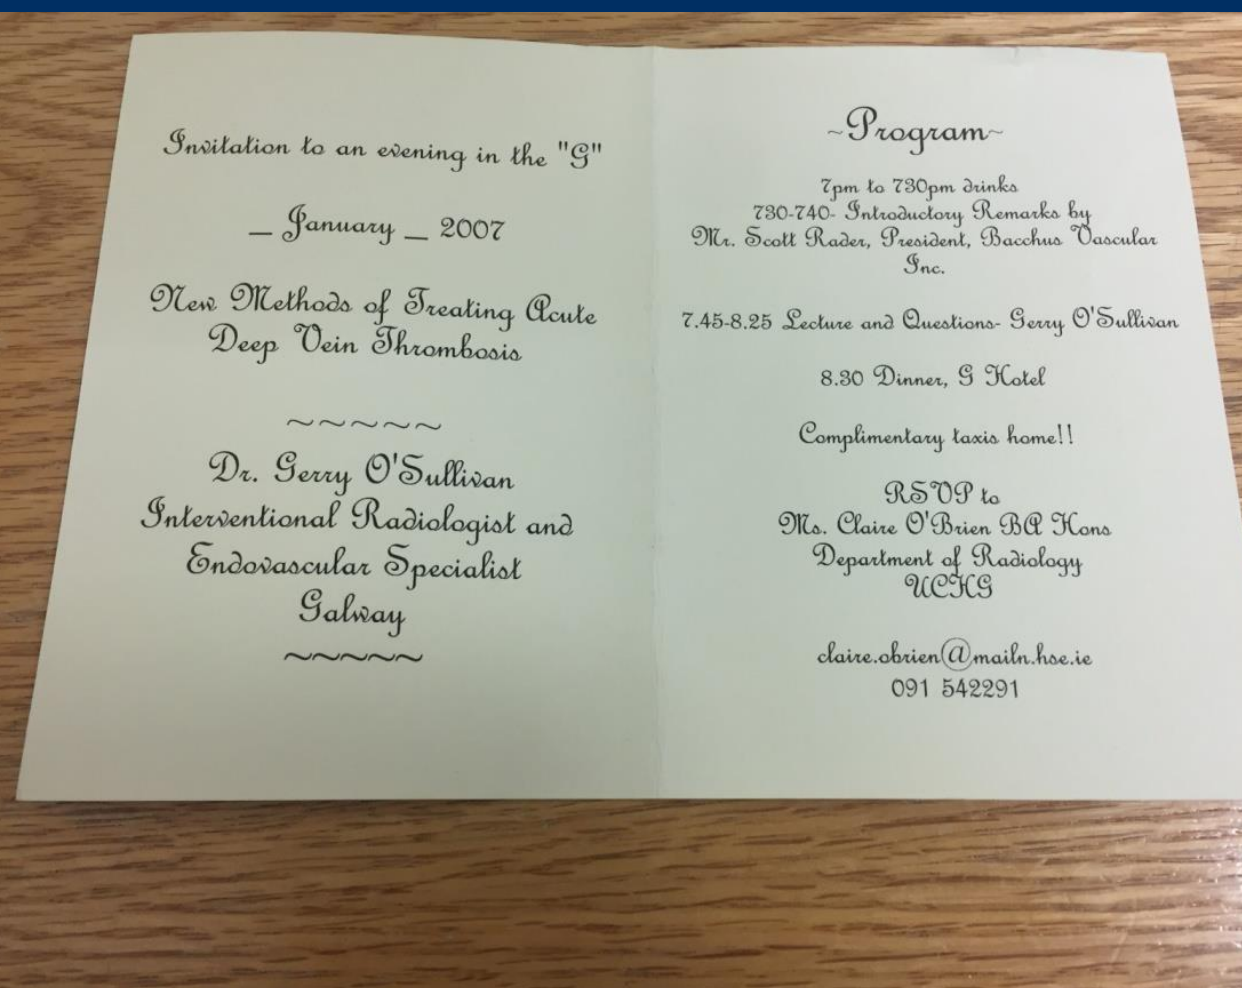 Invitation to an evening in the "G"
_ January _ 2007
New Methods of Treating Acute
Deep Vein Thrombosis
~~~~~
Dr. Gerry O'Sullivan
Interventional Radiologist and
Endovascular Specialist
Galway
~~~~~
~Program~
7pm to 730pm drinks
730-740- Introductory Remarks by
Mr. Scott Rader, President, Bacchus Vascular
Inc.
7.45-8.25 Lecture and Questions- Gerry O'Sullivan
8.30 Dinner, G Hotel
Complimentary taxis home!!
RSVP to
Ms. Claire O'Brien BA Hons
Department of Radiology
UCHG
claire.obrien@mailn.hse.ie
091 542291